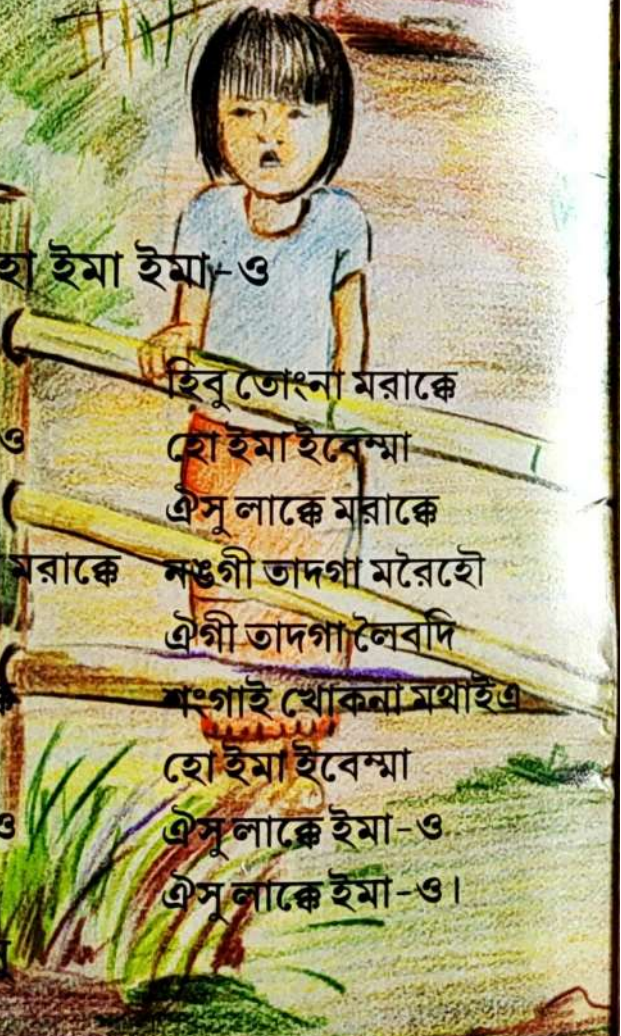 হা ইমা ইমা-ও
হিবু তোংনা মরাক্কে
ও
হো ইমা ইবেম্মা
ঐসু লাক্কে মরাক্কে
মরাক্কে
নঙগী তাদগা মরৈহৌ
ঐগী তাদগা লৈবদি
শংগাই খোকনা মথাইএ
হো ইমা ইবেম্মা
ও
ঐসু লাক্কে ইমা-ও
ঐসু লাক্কে ইমা-ও।